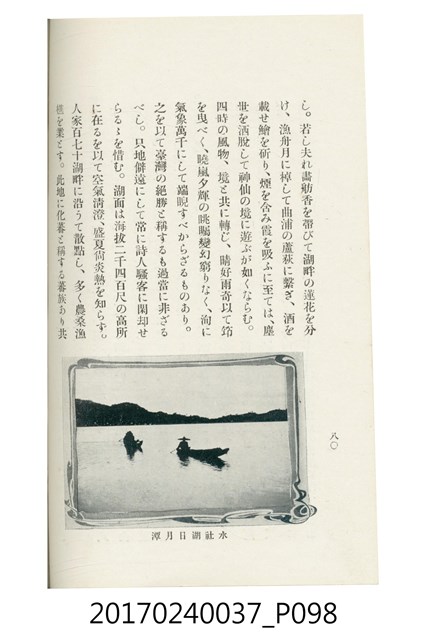 し。若し夫れ畵舫香を帶びて湖畔の蓮花を分
け、漁舟月に棹して曲浦の蘆荻に繫ぎ、酒を
載せ鱠を斫り、煙を含み霞を吸ふに至ては、塵
世を洒脫して神仙の境に遊ぶが如くならむ。
四時の風物、境と共に轉じ、晴好雨奇以て筇
を曳べく、曉嵐夕輝の眺矚變幻窮りなく、洵に
氣象萬千にして端睨すべからざるものあり。
之を以て臺灣の絕勝と稱するも過當に非ざる
べし。只地僻遠にして常に詩人騷客に閑却せ
らるゝを惜む。湖面は海拔二千四百尺の高所
に在るを以て空氣清澄、盛夏尙炎熱を知らず。
人家百七十湖畔に沿うて散點し、多く農桑漁
樵を業とす。此地に化蕃と稱する蕃族あり共
八〇
水社湖日月潭
20170240037_P098